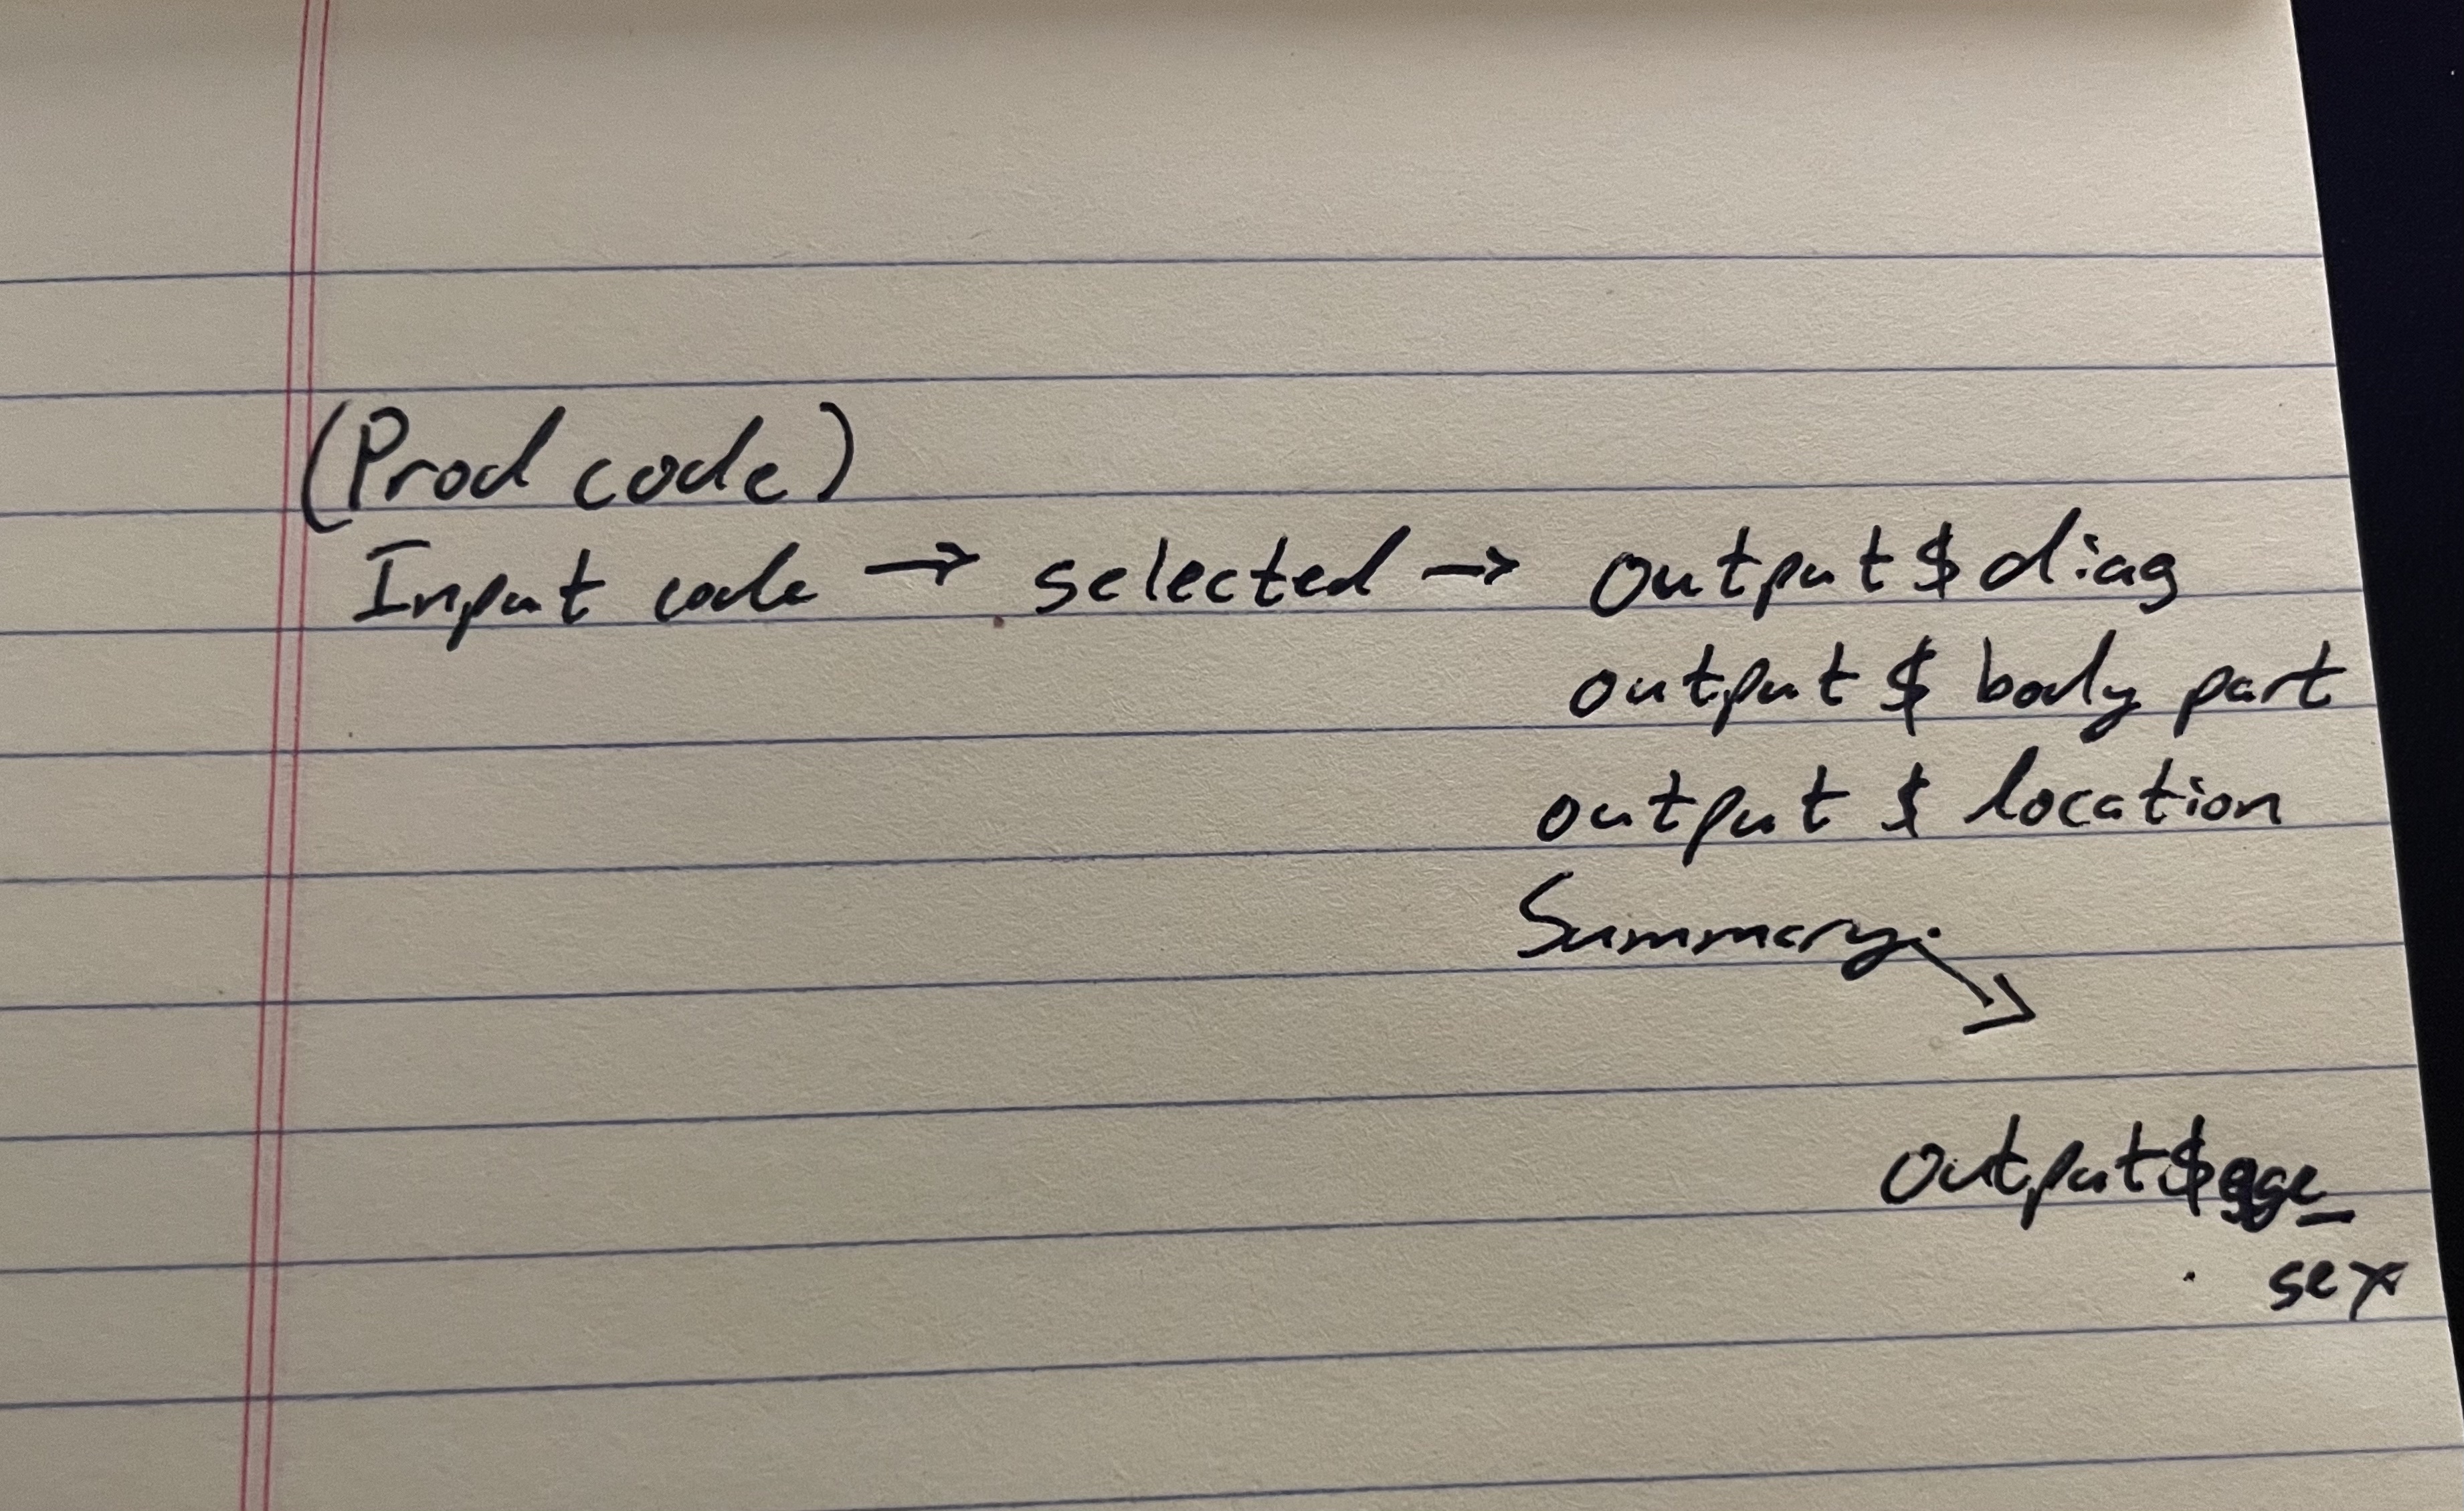 (Prod code)
Input code → selected → output $ diag
output $ body part
output $ location
Summary.
output $ age_
sex